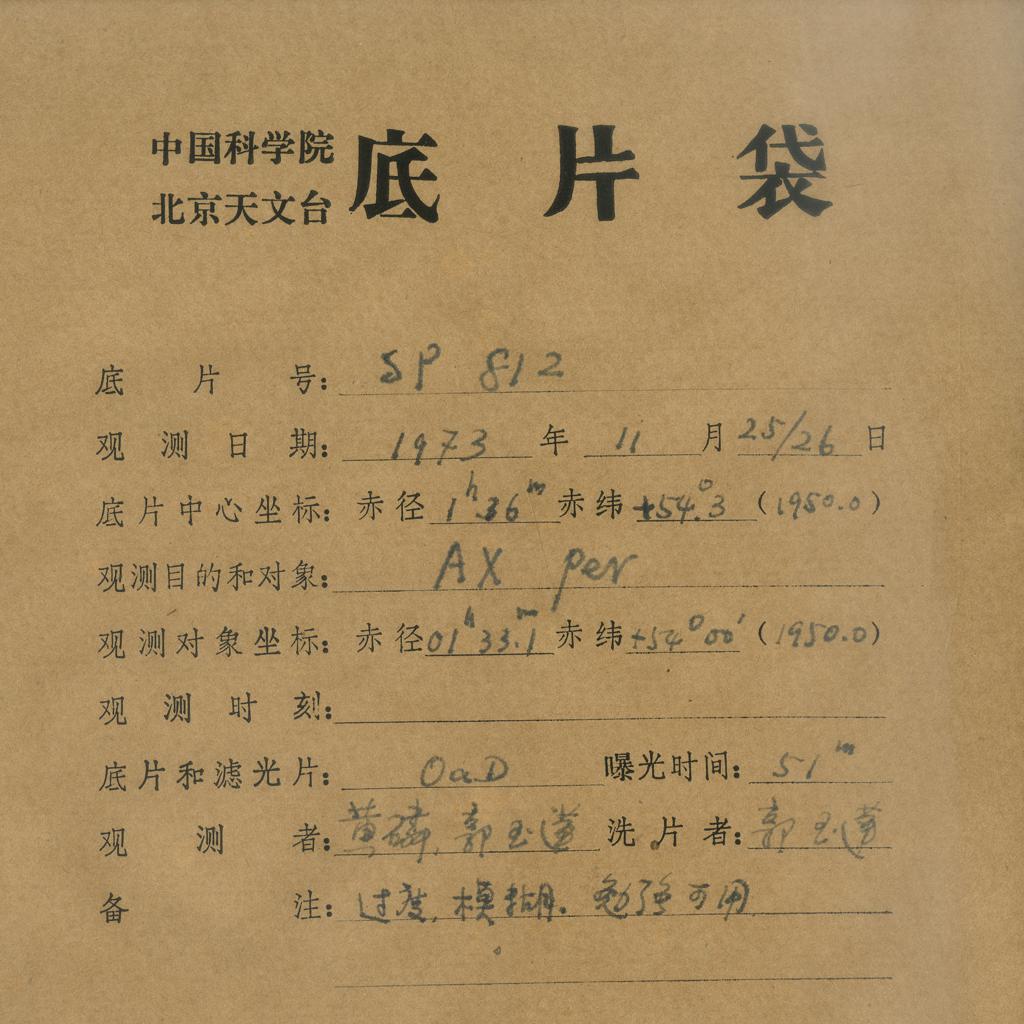 中国科学院
北京天文台
底片袋
底片号: SP 812
观测日期: 1973 年 11 月 25/26 日
底片中心坐标: 赤径 1h 36m 赤纬 +54°.3 (1950.0)
观测目的和对象: AX Per
观测对象坐标: 赤径 01h 33.m1 赤纬 +54°00′ (1950.0)
观测时刻:
底片和滤光片: OaD 曝光时间: 51m
观测者: 黄磷, 郭玉莲 洗片者: 郭玉莲
备注: 过度, 模糊. 勉强可用